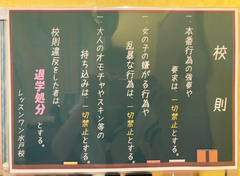 校則
一、本番行為の強要や
要求は、一切禁止とする。
一、女の子の嫌がる行為や
乱暴な行為は、一切禁止とする。
一、大人のオモチャやスキン等の
持ち込みは、一切禁止とする。
校則違反をした者は、
退学処分とする。
レッスンワン水戸校